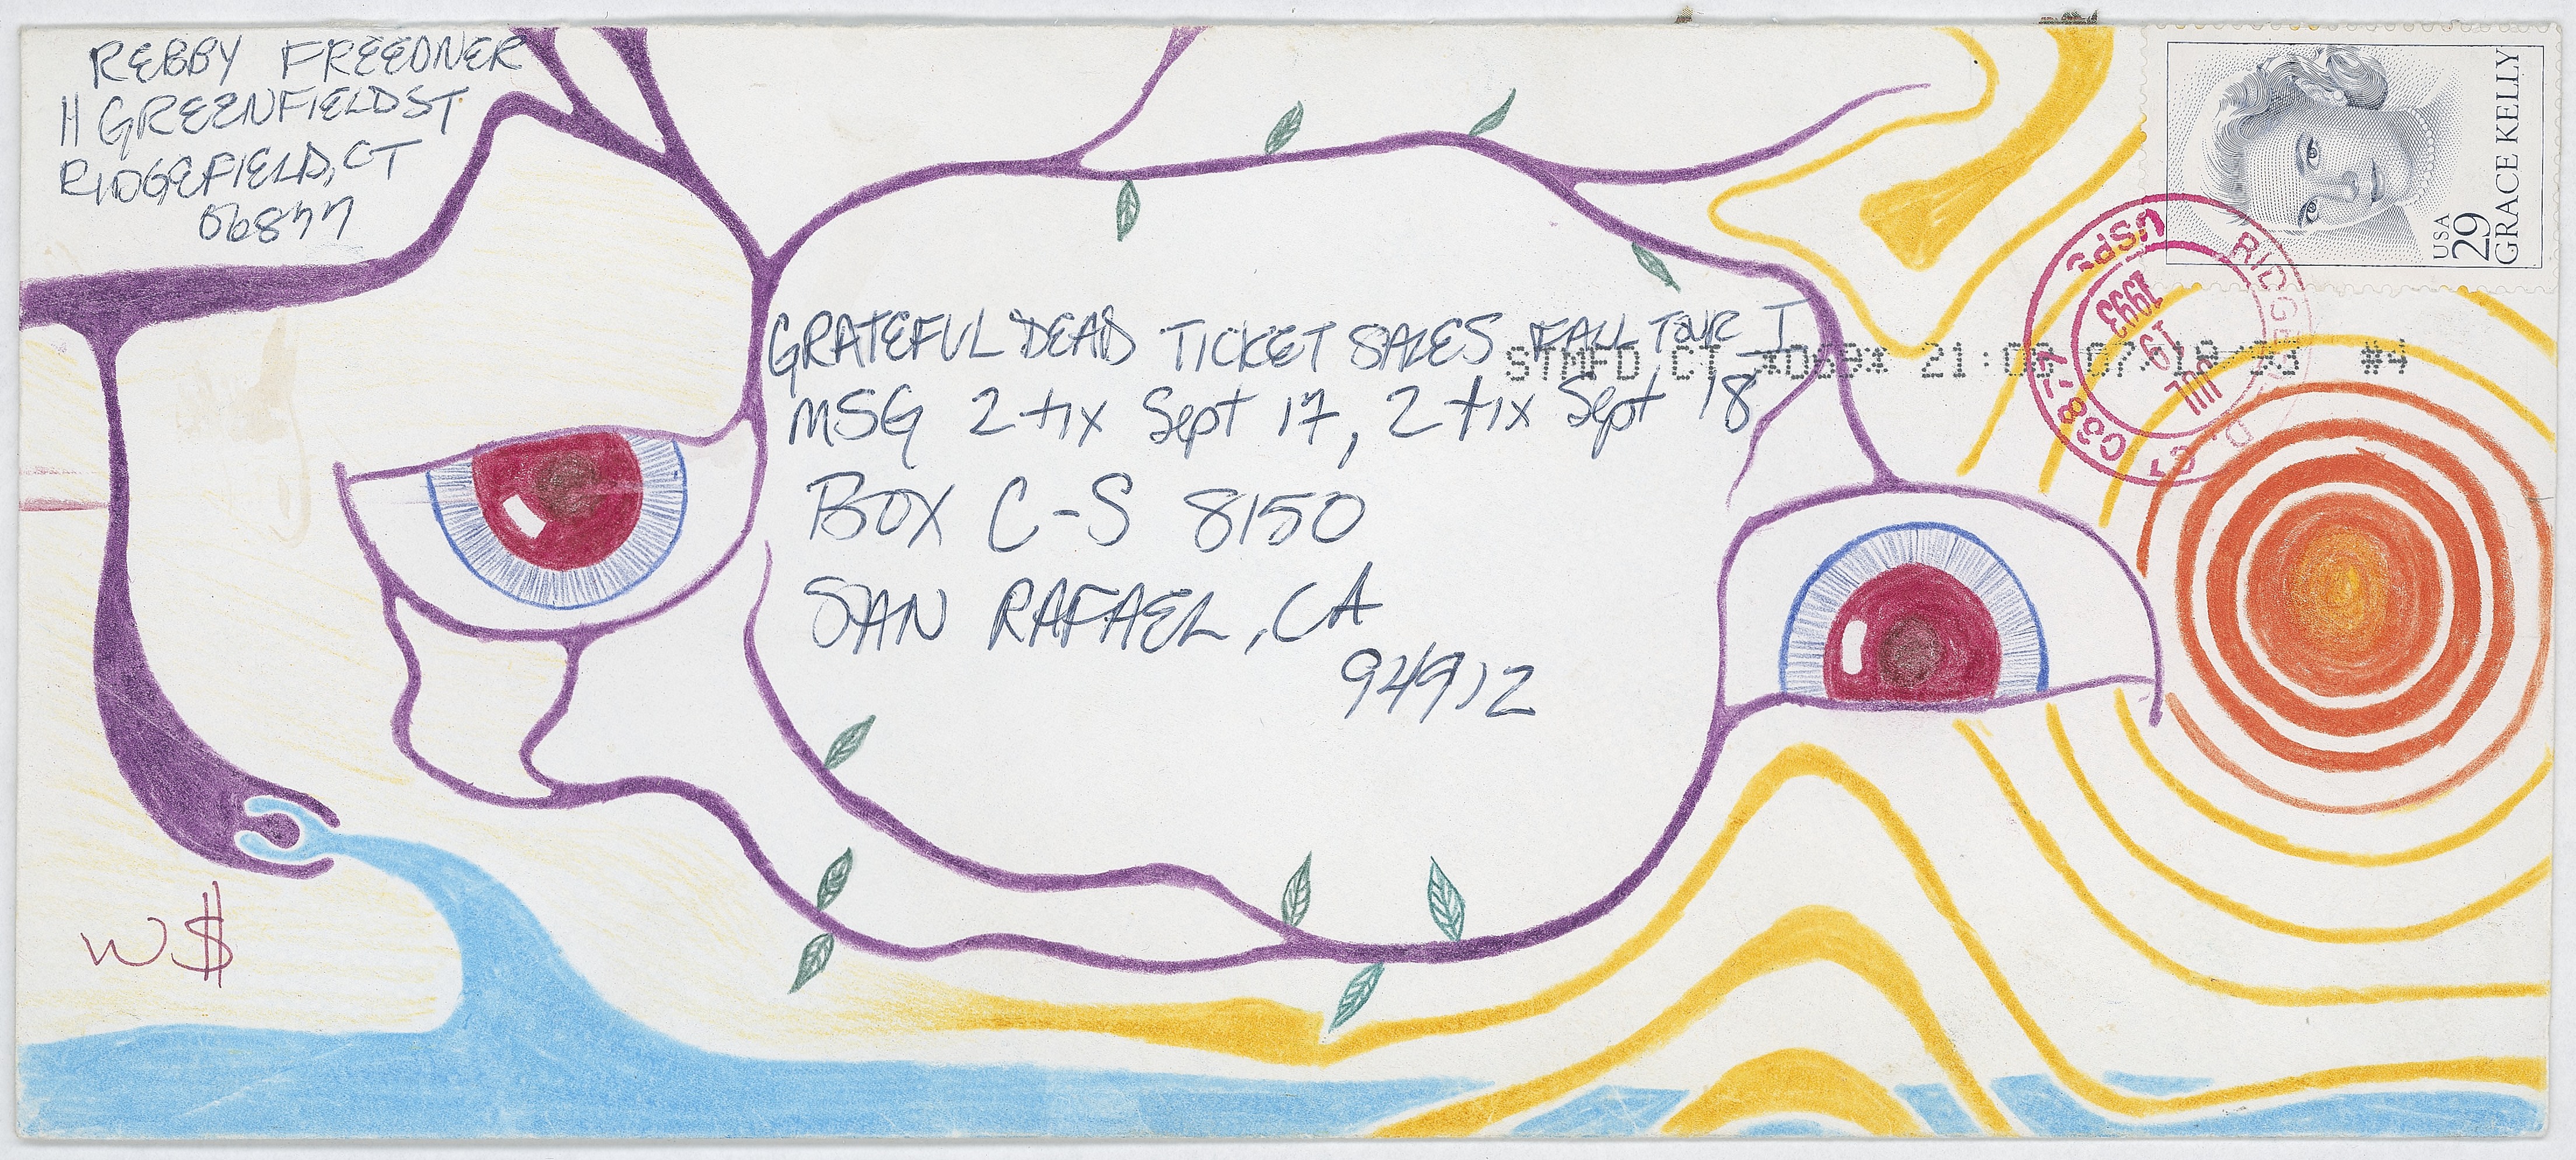 REBBY FREEDNER
11 GREENFIELD ST
RIDGEFIELD, CT
06877
USA
29
GRACE KELLY
RIDGE
CT 06877
USPS
JUL
19
1993
GRATEFUL DEAD TICKET SALES FALL TOUR I
STMFD CT *069* 21:00 07/18/93 #4
MSG 2 tix Sept 17, 2 tix Sept 18
BOX C-S 8150
SAN RAFAEL, CA
94912
W$